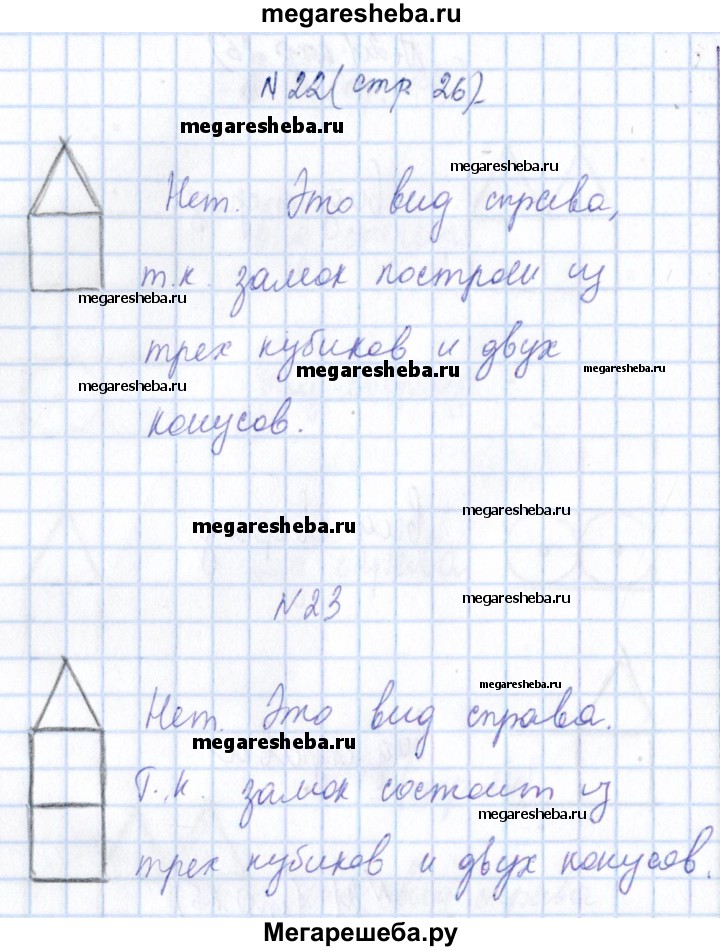 megaresheba.ru
N22(стр 26)
megaresheba.ru
megaresheba.ru
Нет. Это вид справа,
т.к. замок построен из
megaresheba.ru
трех кубиков и двух
megaresheba.ru
megaresheba.ru
megaresheba.ru
конусов.
megaresheba.ru
megaresheba.ru
N23
megaresheba.ru
megaresheba.ru
Нет. Это вид справа.
megaresheba.ru
Т.к. замок состоит из
megaresheba.ru
трех кубиков и двух конусов.
Мегарешеба.ру